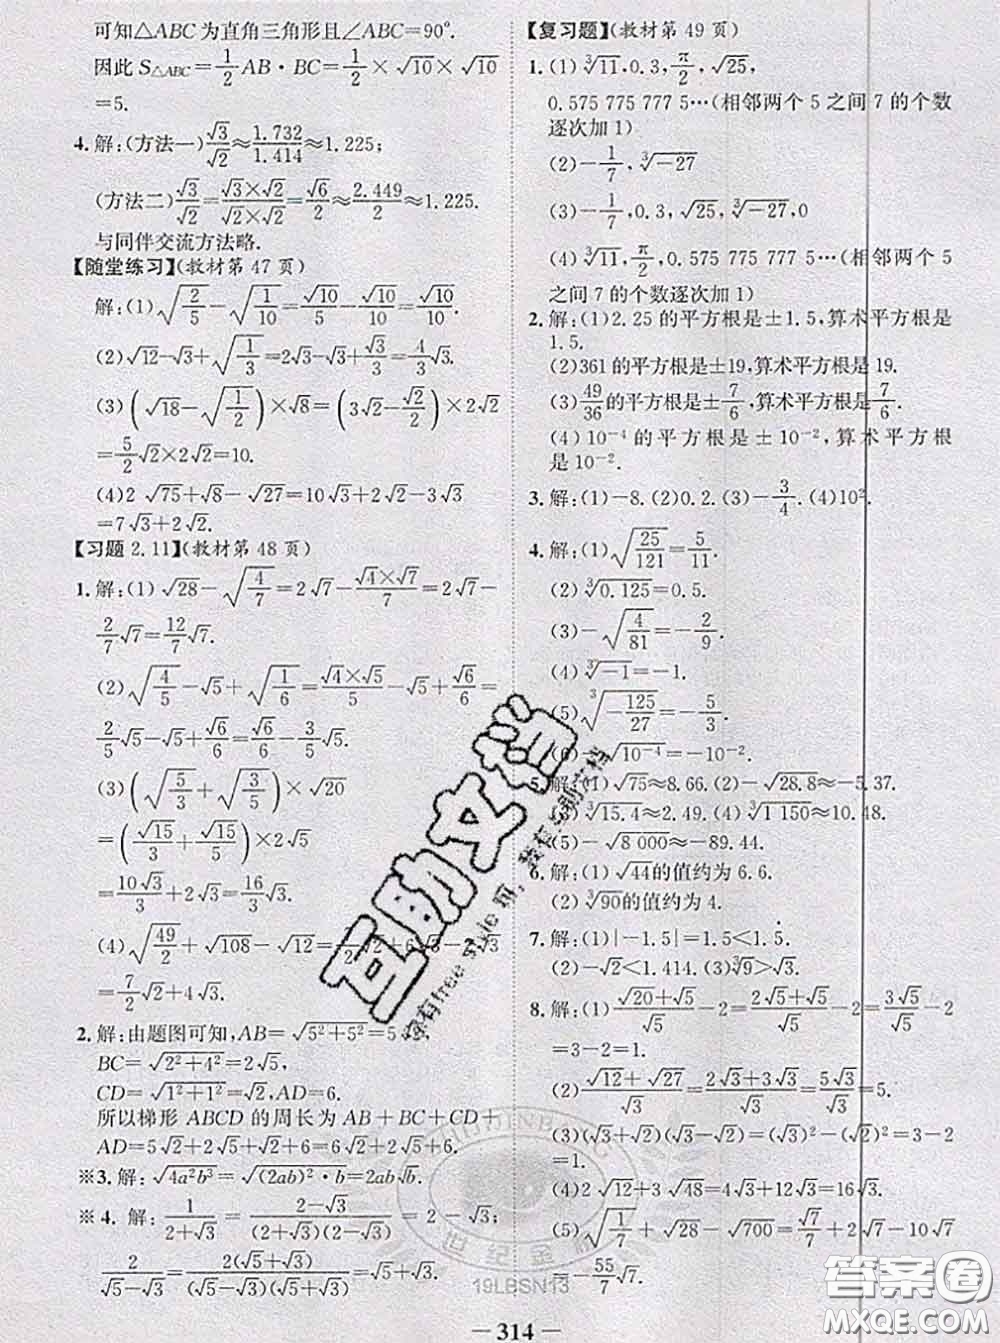 可知△ABC 为直角三角形且∠ABC=90°.
因此 S△ABC=1/2 AB·BC=1/2×√10×√10
=5.
4.解:(方法一)√3/√2≈1.732/1.414≈1.225;
(方法二)√3/√2=(√3×√2)/(√2×√2)=√6/2≈2.449/2≈1.225.
与同伴交流方法略.
【随堂练习】(教材第 47 页)
解:(1)√(2/5)-√(1/10)=√10/5-√10/10=√10/10.
(2)√12-√3+√(1/3)=2√3-√3+√3/3=4/3√3.
(3)(√18-√(1/2))×√8=(3√2-√2/2)×2√2
=5/2√2×2√2=10.
(4)2√75+√8-√27=10√3+2√2-3√3
=7√3+2√2.
【习题 2.11】(教材第 48 页)
1.解:(1)√28-√(4/7)=2√7-(√4×√7)/7=2√7-
2/7√7=12/7√7.
(2)√(4/5)-√5+√(1/6)=(√4×√5)/5-√5+√6/6=
2/5√5-√5+√6/6=√6/6-3/5√5.
(3)(√(5/3)+√(3/5))×√20
=(√15/3+√15/5)×2√5
=10√3/3+2√3=16/3√3.
(4)√(49/2)+√108-√12=7/2√2+6√3-2√3
=7/2√2+4√3.
2.解:由题图可知,AB=√(5²+5²)=5
BC=√(2²+4²)=2√5,
CD=√(1²+1²)=√2,AD=6.
所以梯形 ABCD 的周长为 AB+BC+CD+
AD=5√2+2√5+√2+6=6√2+2√5+6.
※3.解:√(4a²b³)=√((2ab)²·b)=2ab√b.
※4.解:1/(2+√3)=(2-√3)/((2+√3)(2-√3))=2-√3;
2/(√5-√3)=2(√5+√3)/((√5-√3)(√5+√3))=√5+√3.
【复习题】(教材第 49 页)
1.(1)∛11,0.3,π/2,√25,
0.575 775 777 5…(相邻两个 5 之间 7 的个数
逐次加 1)
(2)-1/7,∛-27
(3)-1/7,0.3,√25,∛-27,0
(4)∛11,π/2,0.575 775 777 5…(相邻两个 5
之间 7 的个数逐次加 1)
2.解:(1)2.25 的平方根是±1.5,算术平方根是
1.5.
(2)361 的平方根是±19,算术平方根是 19.
(3)49/36的平方根是±7/6,算术平方根是7/6.
(4)10⁻⁴ 的平方根是±10⁻²,算术平方根是
10⁻².
3.解:(1)-8.(2)0.2.(3)-3/4.(4)10².
4.解:(1)√(25/121)=5/11.
(2)∛0.125=0.5.
(3)-√(4/81)=-2/9.
(4)∛-1=-1.
(5)∛(-125/27)=-5/3.
(6)-√(10⁻⁴)=-10⁻².
5.解:(1)√75≈8.66.(2)-√28.8≈-5.37.
(3)∛15.4≈2.49.(4)∛1 150≈10.48.
(5)-√8 000≈-89.44.
6.解:(1)√44的值约为 6.6.
(2)∛90的值约为 4.
7.解:(1)|-1.5|=1.5<1.7.
(2)-√2<1.414.(3)∛9>√3.
8.解:(1)(√20+√5)/√5-2=(2√5+√5)/√5-2=3√5/√5-2
=3-2=1.
(2)(√12+√27)/√3=(2√3+3√3)/√3=5√3/√3=5.
(3)(√3+√2)(√3-√2)=(√3)²-(√2)²=3-2
=1.
(4)2√12+3√48=4√3+12√3=16√3.
(5)√(1/7)+√28-√700=√7/7+2√7-10√7
=-55/7√7.
互助文档
世纪金榜
19LBSN13
— 314 —
答案圈
MXQE.COM